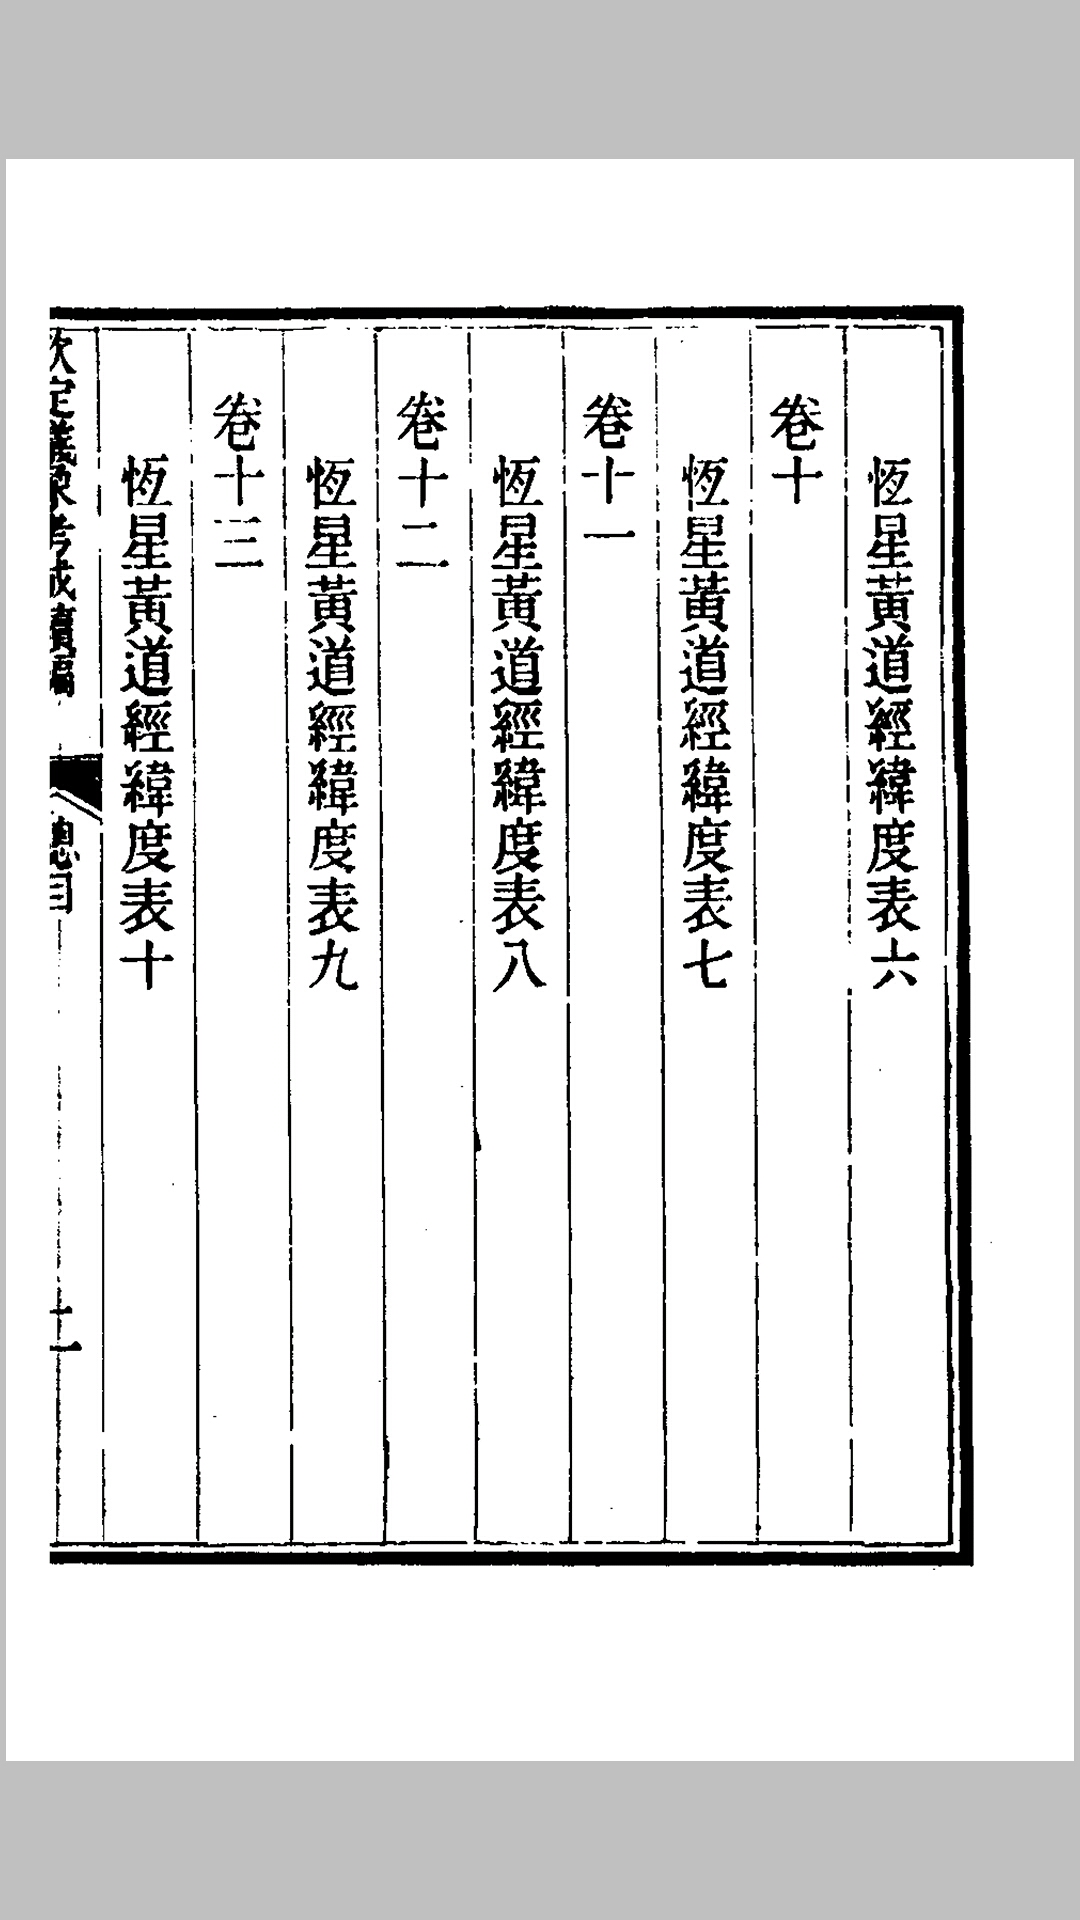 恆星黃道經緯度表六
卷十
恆星黃道經緯度表七
卷十一
恆星黃道經緯度表八
卷十二
恆星黃道經緯度表九
卷十三
恆星黃道經緯度表十
欽定儀象考成續編 總目 二